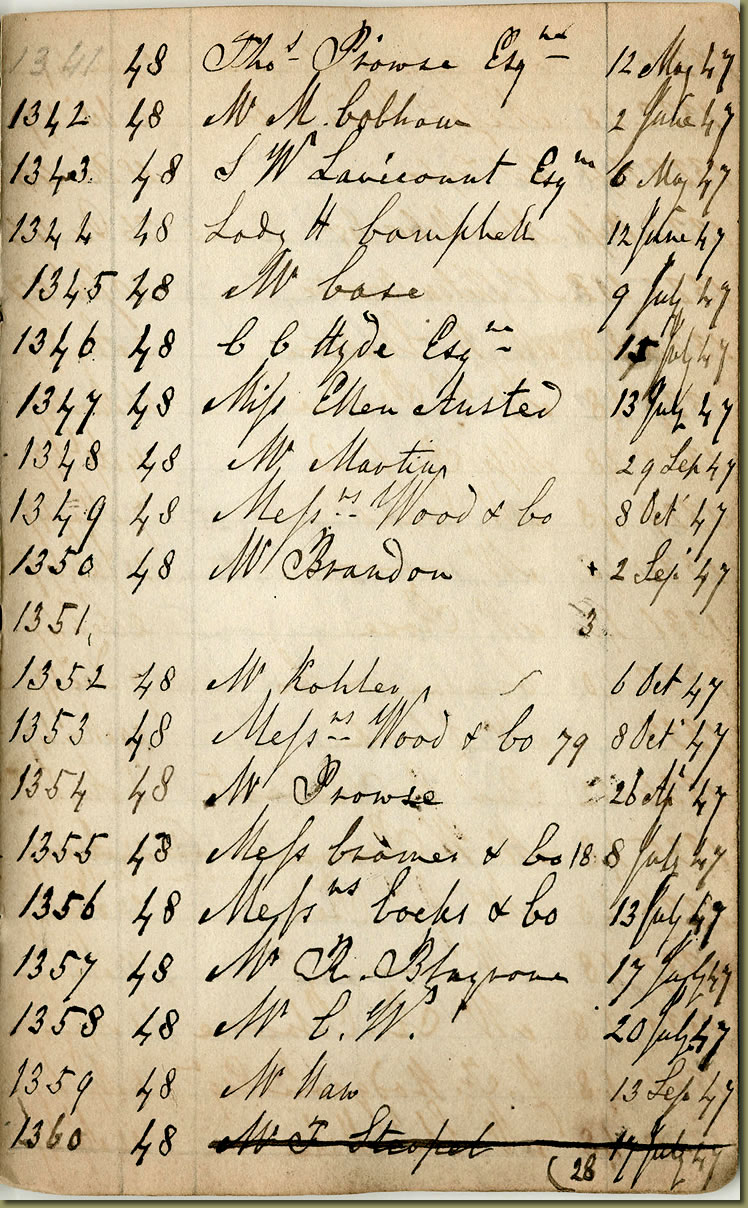 1341 48 Thos Prowse Esqre 12 May 47
1342 48 Mr M. Cobham 2 June 47
1343 48 S W Lavicount Esqre 6 May 47
1344 48 Lady H Campbell 12 June 47
1345 48 Mr Case 9 July 47
1346 48 C C Hyde Esqre 15 July 47
1347 48 Miss Ellen Austed 13 July 47
1348 48 Mr Martin 29 Sep 47
1349 48 Messrs Wood & Co 8 Oct 47
1350 48 Mr Brandon + 2 Sep 47
1351 3
1352 48 Mr Kohler 6 Oct 47
1353 48 Messrs Wood & Co 79 8 Oct 47
1354 48 Mr Prowse 26 Ap 47
1355 48 Mess Cramer & Co 18 8 July 47
1356 48 Messrs Cocks & Co 13 July 47
1357 48 Mr R. Blagrove 17 July 47
1358 48 Mr C. W. 20 July 47
1359 48 Mr Haw 13 Sep 47
1360 48 Mr T 17 July 47
(28